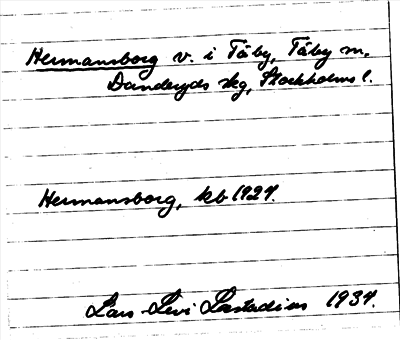 Hermansborg v. i Täby, Täby sn.
Danderyds skg, Stockholms l.
Hermansborg, kb 1927.
Lars-Levi Læstadius 1937.